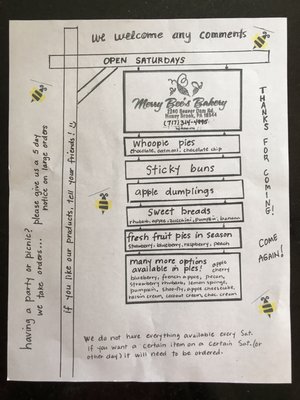 we welcome any comments
OPEN SATURDAYS
Merry Bee's Bakery
2260 Beaver Dam Rd.
Honey Brook, PA 19344
Whoopie pies
chocolate, oatmeal, chocolate chip
Sticky buns
apple dumplings
Sweet breads
rhubarb, apple, zucchini, pumpkin, banana
fresh fruit pies in season
strawberry, blueberry, raspberry, peach
many more options
available in pies! apple
cherry
blueberry, french apple, pecan,
strawberry rhubarb, lemon sponge,
pumpkin, shoo-fly, apple cheesecake,
raisin cream, coconut cream, choc. cream
We do not have everything available every Sat.
if you want a certain item on a certain Sat. (or
other day) it will need to be ordered.
THANKS FOR COMING!
COME AGAIN!
if you like our products, tell your friends!
having a party or picnic? please give us a 5 day
we take orders... notice on large orders